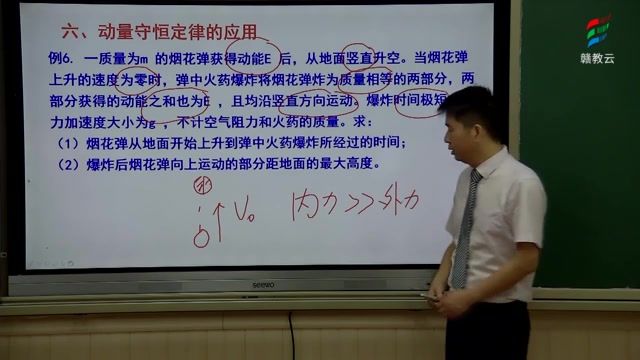 六、动量守恒定律的应用
赣教云
例6. 一质量为m 的烟花弹获得动能E 后，从地面竖直升空。当烟花弹
上升的速度为零时，弹中火药爆炸将烟花弹炸为质量相等的两部分，两
部分获得的动能之和也为E ，且均沿竖直方向运动。爆炸时间极短
力加速度大小为g ，不计空气阻力和火药的质量。求：
（1）烟花弹从地面开始上升到弹中火药爆炸所经过的时间；
（2）爆炸后烟花弹向上运动的部分距地面的最大高度。
V₀
内力>>外力
seewo